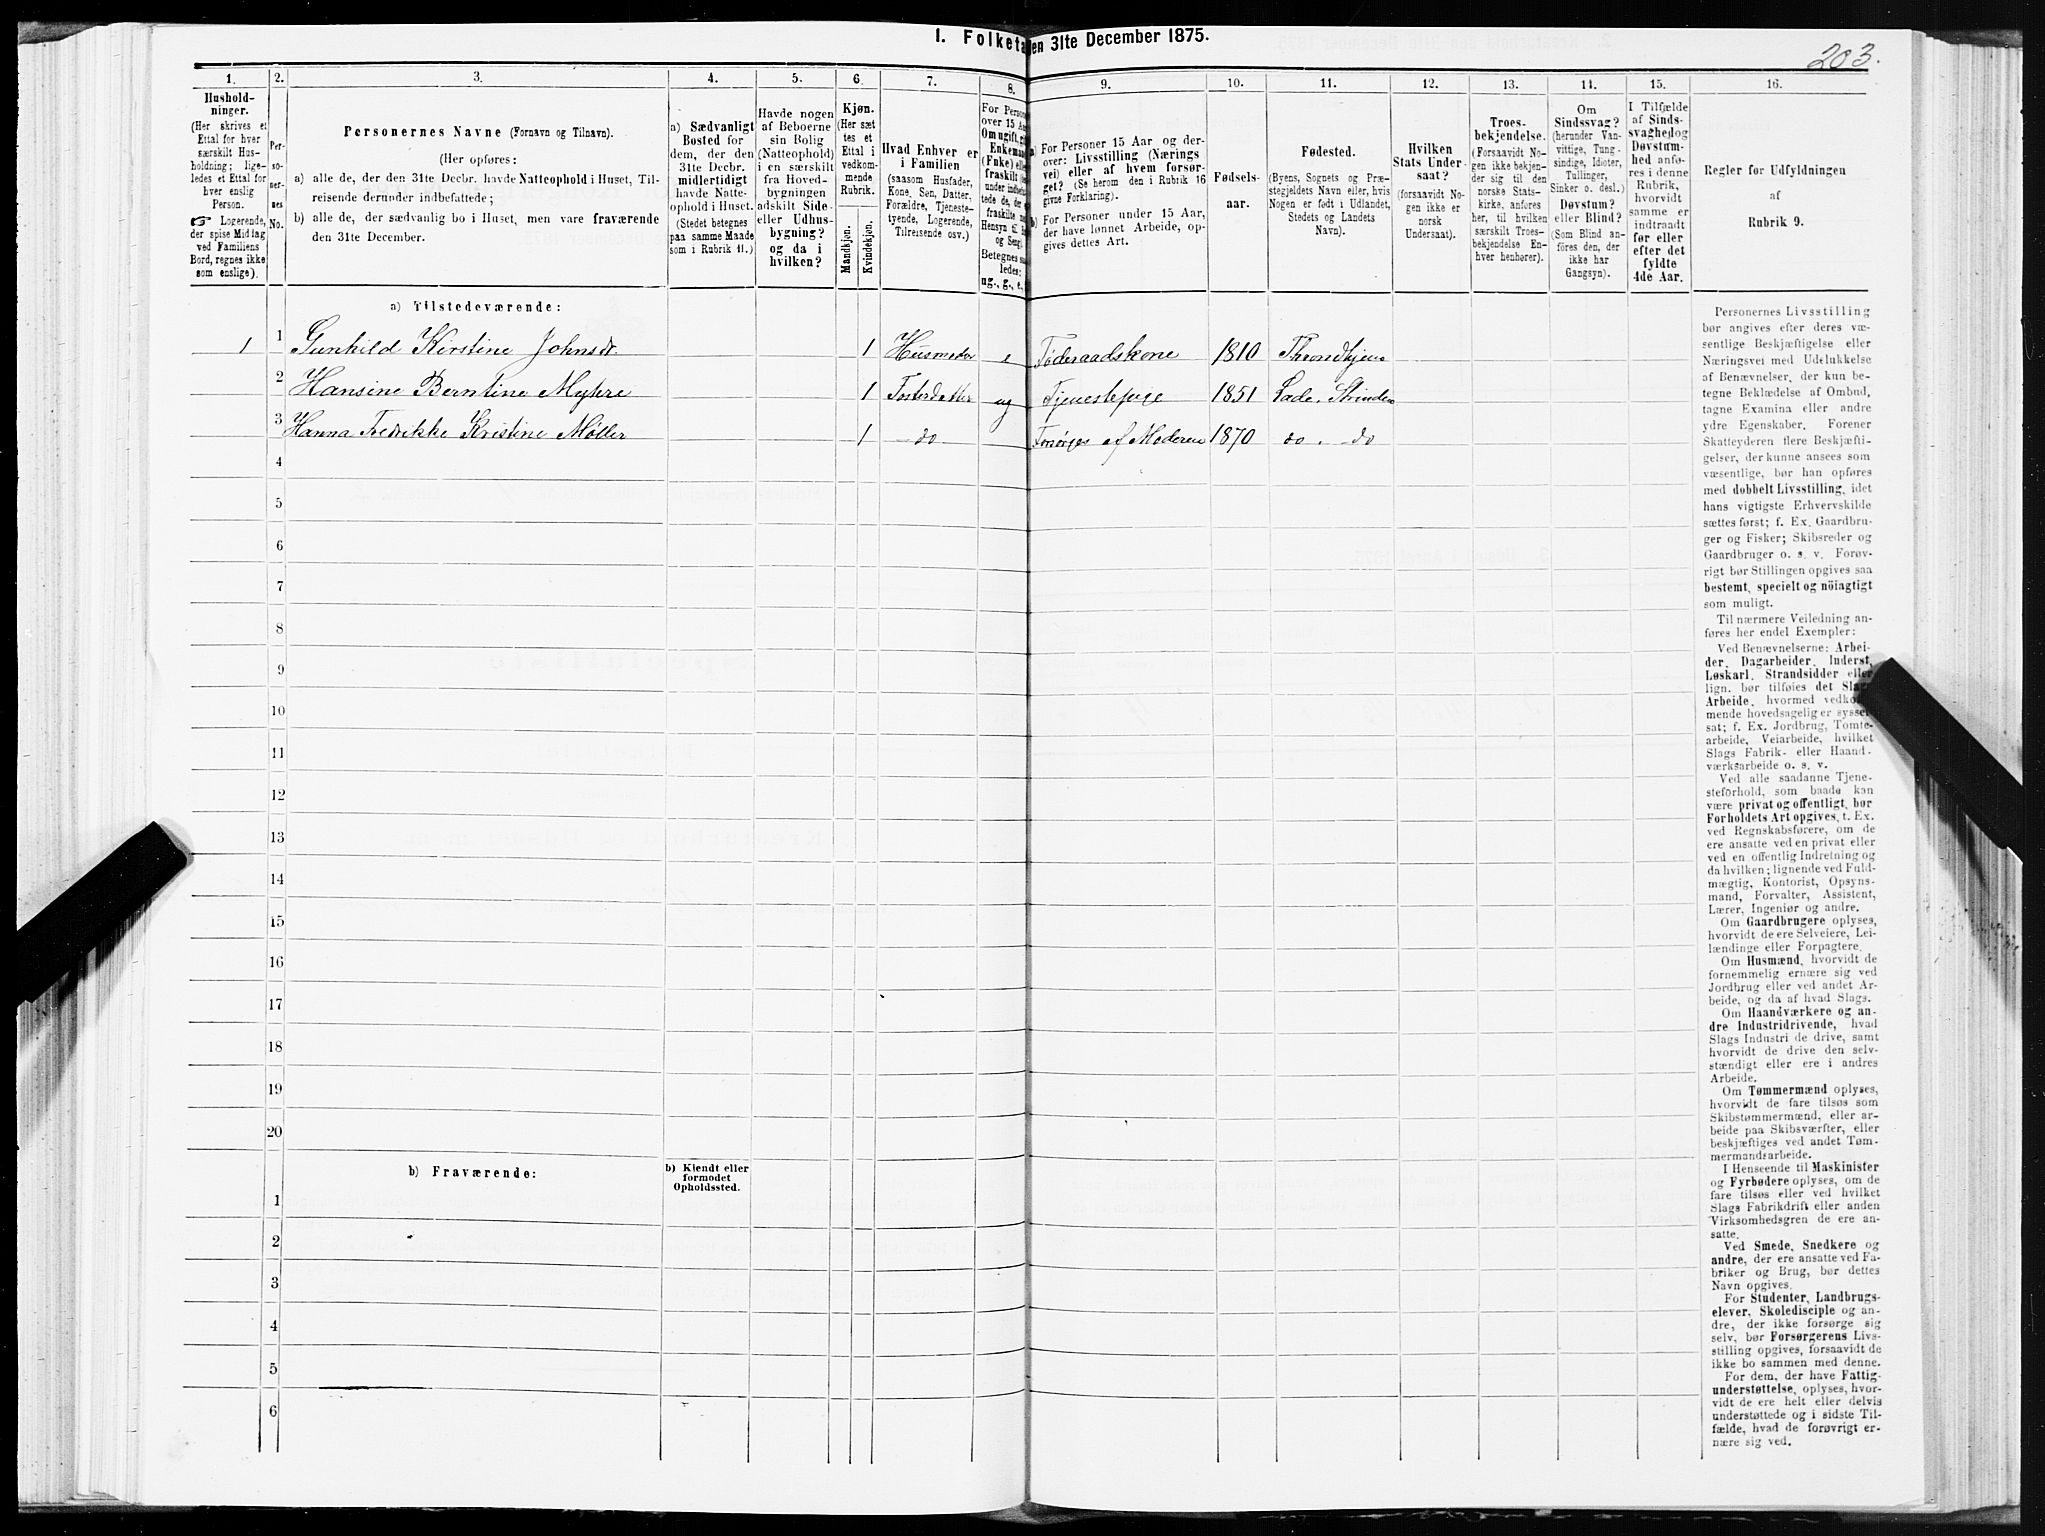 I. Folketæ
en 31te December 1875.
203.
1.
2.
3.
4.
5.
6.
7.
8.
9.
10.
11.
12.
13.
14.
15.
16.
Hushold-
ninger.
(Her skrives et
Ettal for hver
særskilt Hus-
holdning; lige-
ledes et Ettal for
hver enslig
Person.
☞ Logerende,
der spise Middag
ved Familiens
Bord, regnes ikke
som enslige).
Per-
so-
ner-
nes
No.
Personernes Navne (Fornavn og Tilnavn).
(Her opføres:
a) alle de, der den 31te Decbr. havde Natteophold i Huset, Til-
reisende derunder indbefattede;
b) alle de, der sædvanlig bo i Huset, men vare fraværende
den 31te December.
a) Sædvanligt
Bosted for
dem, der den
31te Decbr.
midlertidigt
havde Natte-
ophold i Huset.
(Stedet betegnes
paa samme Maade
som i Rubrik 11.)
Havde nogen
af Beboerne
sin Bolig
(Natteophold)
i en særskilt
fra Hoved-
bygningen
adskilt Side-
eller Udhus-
bygning?
og da i
hvilken?
Kjøn.
(Her sæt
tes et
Ettal i
vedkom-
mende
Rubrik.
Mandkjøn.
Kvindekjøn.
Hvad Enhver er
i Familien
(saasom Husfader,
Kone, Søn, Datter,
Forældre, Tjeneste-
tyende, Logerende,
Tilreisende osv.)
For Perso
over 15 Aa
Om ugift, g
Enkeman
(Enke) elle
fraskilt (e
under indbefat
tede de, der e
fraskilte me
Hensyn til B
og Seng).
Betegnes saa
ledes:
ug., g., e.,
a) For Personer 15 Aar og der-
over: Livsstilling (Nærings
vei) eller af hvem forsør-
get? (Se herom den i Rubrik 16
givne Forklaring).
b) For Personer under 15 Aar,
der have lønnet Arbeide, op-
gives dettes Art.
Fødsels-
aar.
Fødested.
(Byens, Sognets og Præ-
stegjeldets Navn eller, hvis
Nogen er født i Udlandet,
Stedets og Landets
Navn).
Hvilken
Stats Under-
saat?
(forsaavidt No-
gen ikke er
norsk
Undersaat).
Troes-
bekjendelse.
(Forsaavidt No-
gen ikke bekjen-
der sig til den
norske Stats-
kirke, anføres
her, til hvilken
særskilt Troes-
bekjendelse En-
hver henhører).
Om
Sindssvag?
(herunder Van-
vittige, Tung-
sindige, Idioter,
Tullinger,
Sinker o. desl.)
Døvstum?
eller Blind?
(Som Blind an-
føres den, der
ikke har
Gangsyn).
I Tilfælde
af Sinds-
svaghed og
Døvstum-
hed anfø-
res i denne
Rubrik,
hvorvidt
samme er
indtraadt
før eller
efter det
fyldte
4de Aar.
Regler for Udfyldningen
af
Rubrik 9.
a) Tilstedeværende:
1 1 Gunhild Kirstine Johnsdr. 1 Husmoder e Føderaadskone 1810 Throndhjem
2 Hansine Berntine Myhre 1 Fosterdatter ug Tjenestepige 1851 Lade, Strinden
3 Hanna Fredrikke Kristine Møller 1 do Forsørges af Moderen 1870 do. do
4
5
6
7
8
9
10
11
12
13
14
15
16
17
18
19
20
b) Fraværende:
b) Kjendt eller
formodet
Opholdssted.
1
2
3
4
5
6
Personernes Livsstilling
bør angives efter deres væ-
sentlige Beskjæftigelse eller
Næringsvei med Udelukkelse
af Benævnelser, der kun be-
tegne Beklædelse af Ombud,
tagne Examina eller andre
ydre Egenskaber. Forener
Skatteyderen flere Beskjæfti-
gelser, der kunne ansees som
væsentlige, bør han opføres
med dobbelt Livsstilling, idet
hans vigtigste Erhvervskilde
sættes først; f. Ex. Gaardbru-
ger og Fisker; Skibsreder og
Gaardbruger o. s. v. Forøv-
rigt bør Stillingen opgives saa
bestemt, specielt og nöiagtigt
som muligt.
Til nærmere Veiledning an-
føres her endel Exempler:
Ved Benævnelserne: Arbei-
der, Dagarbeider, Inderst,
Løskarl, Strandsidder eller
lign. bør tilføies det Slags
Arbeide, hvormed vedkom-
mende hovedsagelig er syssel-
sat; f. Ex. Jordbrug, Tomte-
arbeide, Veiarbeide, hvilket
Slags Fabrik- eller Haand-
værksarbeide o. s. v.
Ved alle saadanne Tjene-
steforhold, som baade kan
være privat og offentligt, bør
Forholdets Art opgives, t. Ex.
ved Regnskabsførere, om de
ere ansatte ved en privat eller
ved en offentlig Indretning og
da hvilken; lignende ved Fuld-
mægtig, Kontorist, Opsyns-
mand, Forvalter, Assistent,
Lærer, Ingeniør og andre.
Om Gaardbrugere oplyses,
hvorvidt de ere Selveiere, Lei-
lændinge eller Forpagtere.
Om Husmænd, hvorvidt de
fornemmelig ernære sig ved
Jordbrug eller ved andet Ar-
beide, og da af hvad Slags.
Om Haandværkere og an-
dre Industridrivende, hvad
Slags Industri de drive, samt
hvorvidt de drive den selv-
stændigt eller ere i andres
Arbeide.
Om Tømmermænd oplyses,
hvorvidt de fare tilsøs som
Skibstømmermænd, eller ar-
beide paa Skibsværfter, eller
beskjæftiges ved andet Tøm-
mermandsarbeide.
I Henseende til Maskinister
og Fyrbødere oplyses, om de
fare tilsøs eller ved hvilket
Slags Fabrikdrift eller anden
Virksomhedsgren de ere an-
satte.
Ved Smede, Snedkere og
andre, der ere ansatte ved Fa-
briker og Brug, bør dettes
Navn opgives.
For Studenter, Landbrugs-
elever, Skoledisciple og an-
dre, der ikke forsørge sig
selv, bør Forsørgerens Livs-
stilling opgives, forsaavidt de
ikke bo sammen med denne.
For dem, der have Fattig-
understøttelse, oplyses, hvor-
vidt de ere helt eller delvis
understøttede og i sidste Til-
fælde, hvad de forøvrigt er-
nære sig ved.